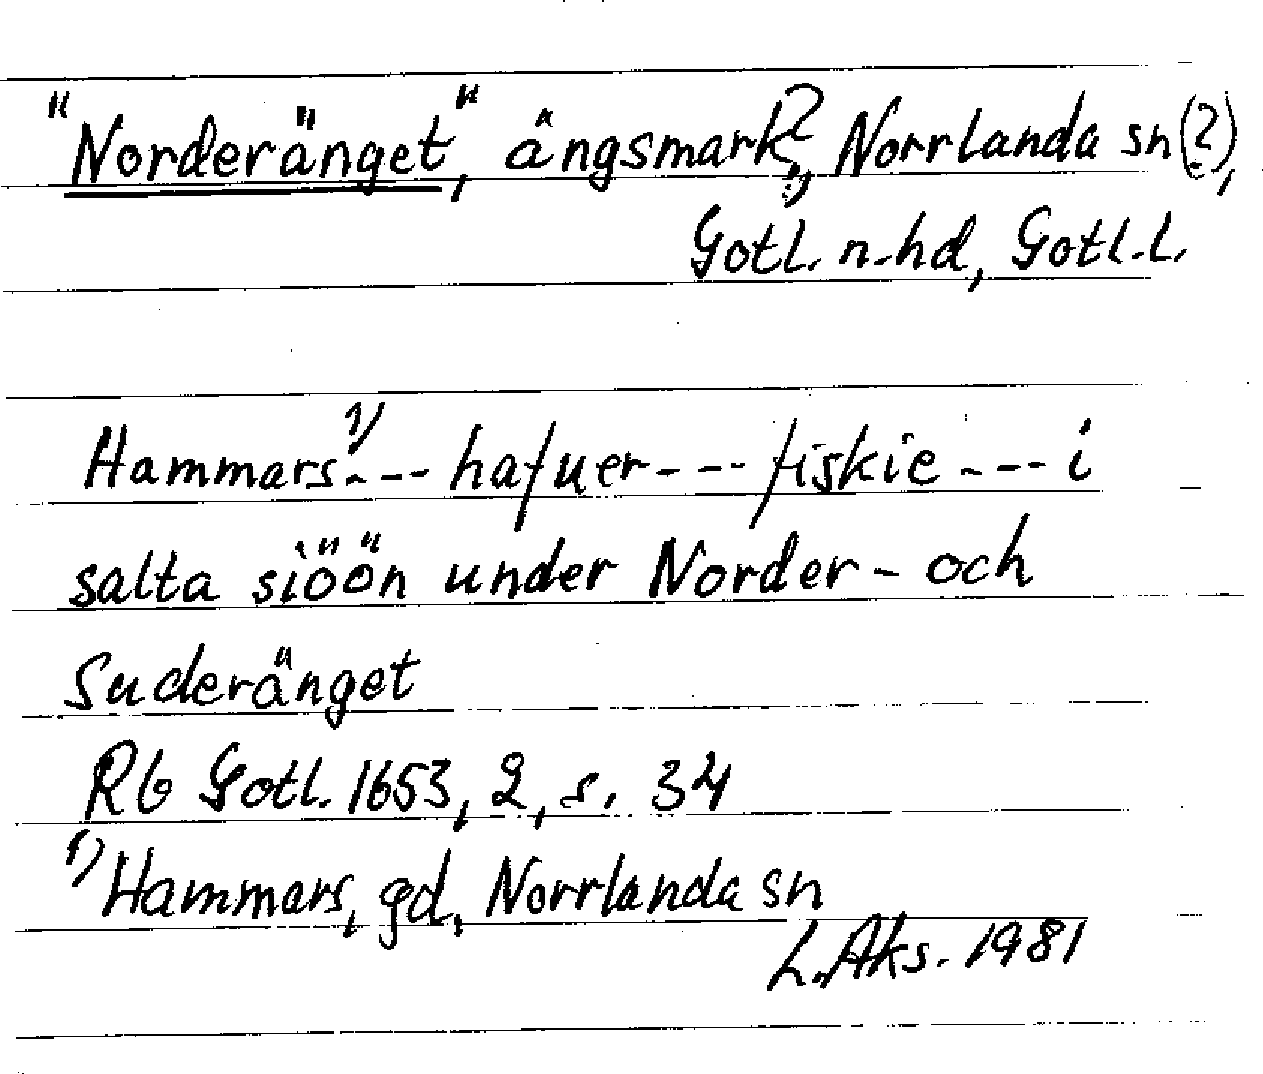 "Norderänget", ängsmark?, Norrlanda sn(?),
Gotl. n.hd, Gotl.l.
Hammars¹⁾--- hafuer--- fiskie --- i
salta siöön under Norder- och
Suderänget
Rb Gotl. 1653, 2, s. 34
¹⁾Hammars, gd, Norrlanda sn
L.Aks. 1981